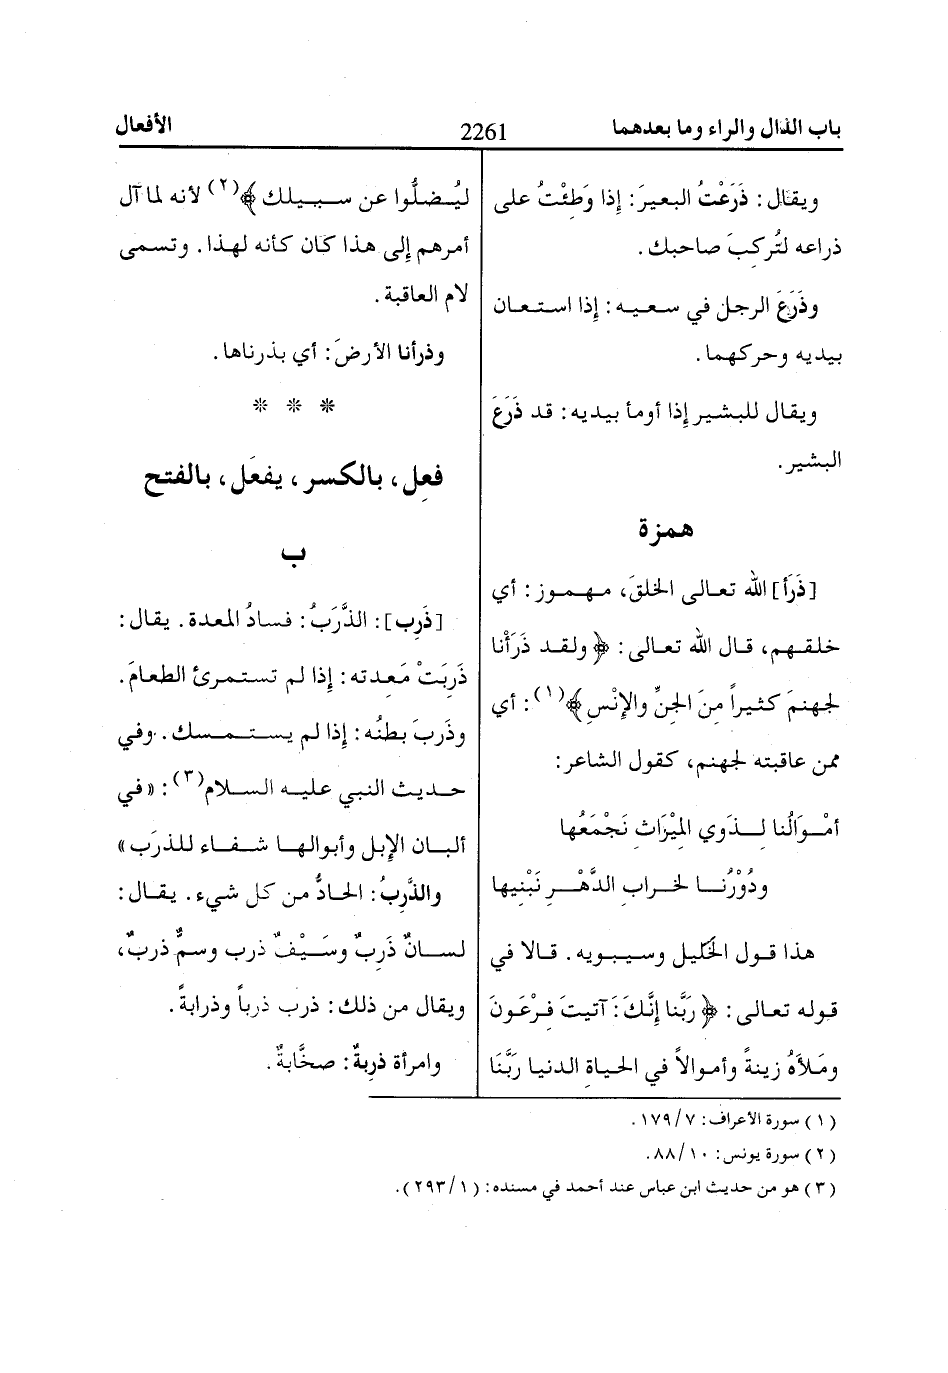 باب الذال والراء وما بعدهما 2261 الأفعال
ويقال: ذَرَعْتُ البعيرَ: إذا وَطِئْتُ على
ذراعه لتُركِبَ صاحبك.
وذَرَعَ الرجل في سعيه: إذا استعان
بيديه وحركهما.
ويقال للبشير إذا أومأ بيديه: قد ذَرَعَ
البشير.
همزة
[ذَرَأ] الله تعالى الخلقَ، مهموز: أي
خلقهم، قال الله تعالى: ﴿ ولقد ذَرَأْنا
لجهنمَ كثيراً منَ الجنِّ والإِنْسِ ﴾(١): أي
ممن عاقبته لجهنم، كقول الشاعر:
أمْوَالُنا لِذَوي المِيْرَاثِ نَجْمَعُها
ودُوْرُنا لخراب الدَّهْرِ نَبْنِيها
هذا قول الخَليل وسيبويه. قالا في
قوله تعالى: ﴿ رَبَّنا إِنَّكَ: آتيتَ فِرْعَونَ
ومَلأَهُ زينةً وأموالاً في الحياة الدنيا رَبَّنَا
ليُضلُّوا عن سبيلك ﴾(٢) لأنه لما آل
أمرهم إلى هذا كان كأنه لهذا. وتسمى
لام العاقبة.
وذرأنا الأرضَ: أي بذرناها.
* * *
فعِل، بالكسر، يفعَل، بالفتح
ب
[ذَرِب]: الذَّرَبُ: فسادُ المعدة. يقال:
ذَرِبَتْ مَعِدته: إذا لم تستمرئ الطعامَ.
وذَرِبَ بطنُه: إذا لم يستمسك. وفي
حديث النبي عليه السلام(٣): «في
ألبان الإبل وأبوالها شفاء للذرَب»
والذَّرِبُ: الحادُّ من كل شيء. يقال:
لسانٌ ذَرِبٌ وسَيْفٌ ذرب وسمٌّ ذربٌ،
ويقال من ذلك: ذرب ذرباً وذرابةً.
وامرأة ذرِبةٌ: صخَّابةٌ.
(١) سورة الأعراف: ٧/ ١٧٩.
(٢) سورة يونس: ١٠/ ٨٨.
(٣) هو من حديث ابن عباس عند أحمد في مسنده: (١/ ٢٩٣).